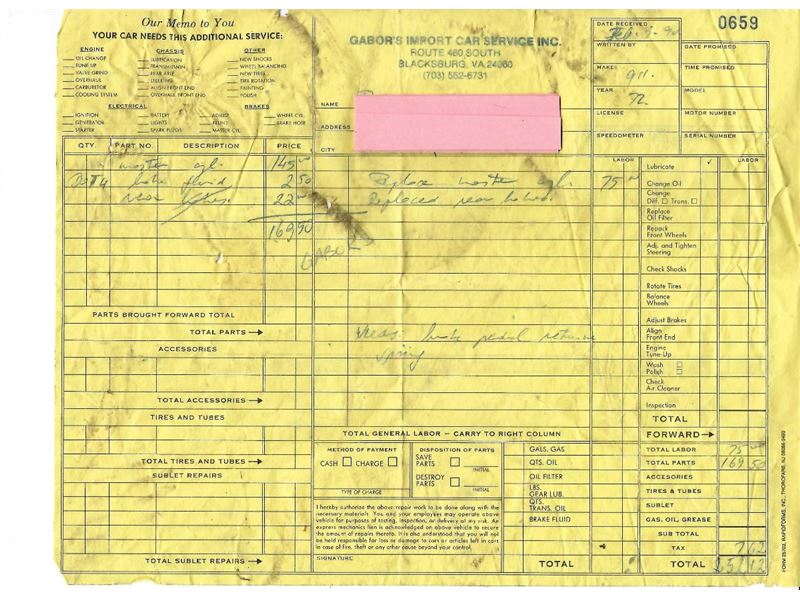 Our Memo to You
YOUR CAR NEEDS THIS ADDITIONAL SERVICE:
ENGINE
OIL CHANGE
TUNE UP
VALVE GRIND
OVERHAUL
CARBURETOR
COOLING SYSTEM
CHASSIS
LUBRICATION
TRANSMISSION
REAR AXLE
STEERING
ALIGN FRONT END
OVERHAUL FRONT END
OTHER
NEW SHOCKS
WHEEL BALANCING
NEW TIRES
TIRE ROTATION
PAINTING
POLISH
ELECTRICAL
IGNITION
GENERATOR
STARTER
BATTERY
LIGHTS
SPARK PLUGS
BRAKES
ADJUST
RELINE
MASTER CYL.
WHEEL CYL.
BRAKE HOSE
GABOR'S IMPORT CAR SERVICE INC.
ROUTE 460 SOUTH
BLACKSBURG, VA 24060
(703) 552-6731
NAME
ADDRESS
CITY
DATE RECEIVED
0659
WRITTEN BY
DATE PROMISED
MAKE
914
TIME PROMISED
YEAR
72
MODEL
LICENSE
MOTOR NUMBER
SPEEDOMETER
SERIAL NUMBER
QTY.
PART NO.
DESCRIPTION
PRICE
LABOR
LABOR
master cyl. 145.00
fluid 2 50
rear 22
169 90
GABOR'S
Replace master cyl. 75.00
Replaced rear
brake pedal return
spring
Lubricate
Change Oil
Change
Diff. Trans.
Replace
Oil Filter
Repack
Front Wheels
Adj. and Tighten
Steering
Check Shocks
Rotate Tires
Balance
Wheels
Adjust Brakes
Align
Front End
Engine
Tune-Up
Wash
Polish
Check
Air Cleaner
Inspection
TOTAL
FORWARD
PARTS BROUGHT FORWARD TOTAL
TOTAL PARTS
ACCESSORIES
TOTAL ACCESSORIES
TIRES AND TUBES
TOTAL TIRES AND TUBES
SUBLET REPAIRS
TOTAL SUBLET REPAIRS
TOTAL GENERAL LABOR - CARRY TO RIGHT COLUMN
METHOD OF PAYMENT
CASH CHARGE
TYPE OF CHARGE
DISPOSITION OF PARTS
SAVE
PARTS
INITIAL
DESTROY
PARTS
INITIAL
I hereby authorize the above repair work to be done along with the
necessary materials. You and your employees may operate above
vehicle for purposes of testing, inspection, or delivery at my risk. An
express mechanics lien is acknowledged on above vehicle to secure
the amount of repairs thereto. It is also understood that you will not
be held responsible for loss or damage to cars or articles left in cars
in case of fire, theft or any other cause beyond your control.
SIGNATURE
GALS. GAS
QTS. OIL
OIL FILTER
LBS.
GEAR LUB.
QTS.
TRANS. OIL
BRAKE FLUID
TOTAL
TOTAL LABOR 75
TOTAL PARTS 169 50
ACCESORIES
TIRES & TUBES
SUBLET
GAS, OIL, GREASE
SUB TOTAL
TAX 7 62
TOTAL